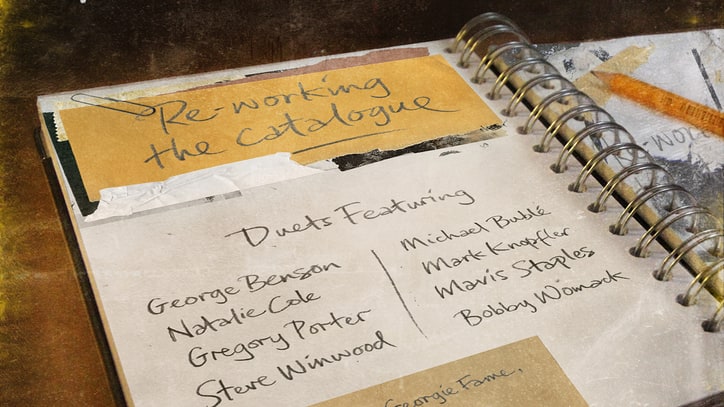 Re-working
the Catalogue
Duets Featuring
George Benson
Natalie Cole
Gregory Porter
Steve Winwood
Michael Bublé
Mark Knopfler
Mavis Staples
Bobby Womack
Georgie Fame,
Re-wor